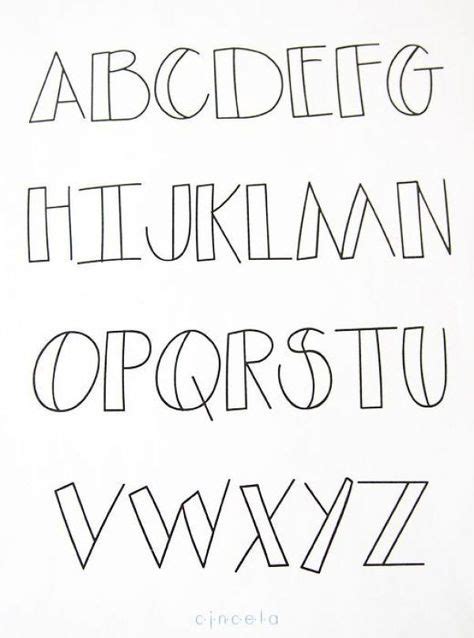 ABCDEFG
HIJKLMN
OPQRSTU
VWXYZ
cincela